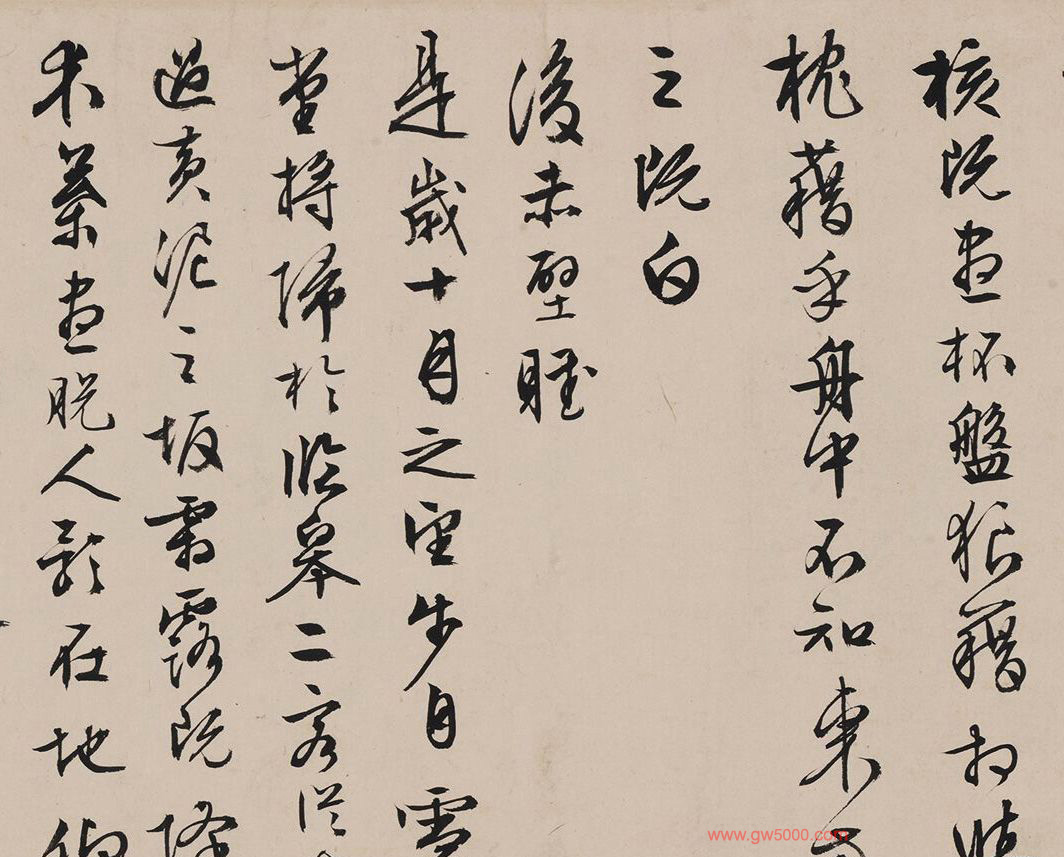 核既盡杯盤狼藉相
枕藉乎舟中不知東
之既白
後赤壁賦
是歲十月之望步自雪
堂將歸於臨皋二客從
過黃泥之坂霜露既降
木葉盡脫人影在地仰
www.gw5000.com